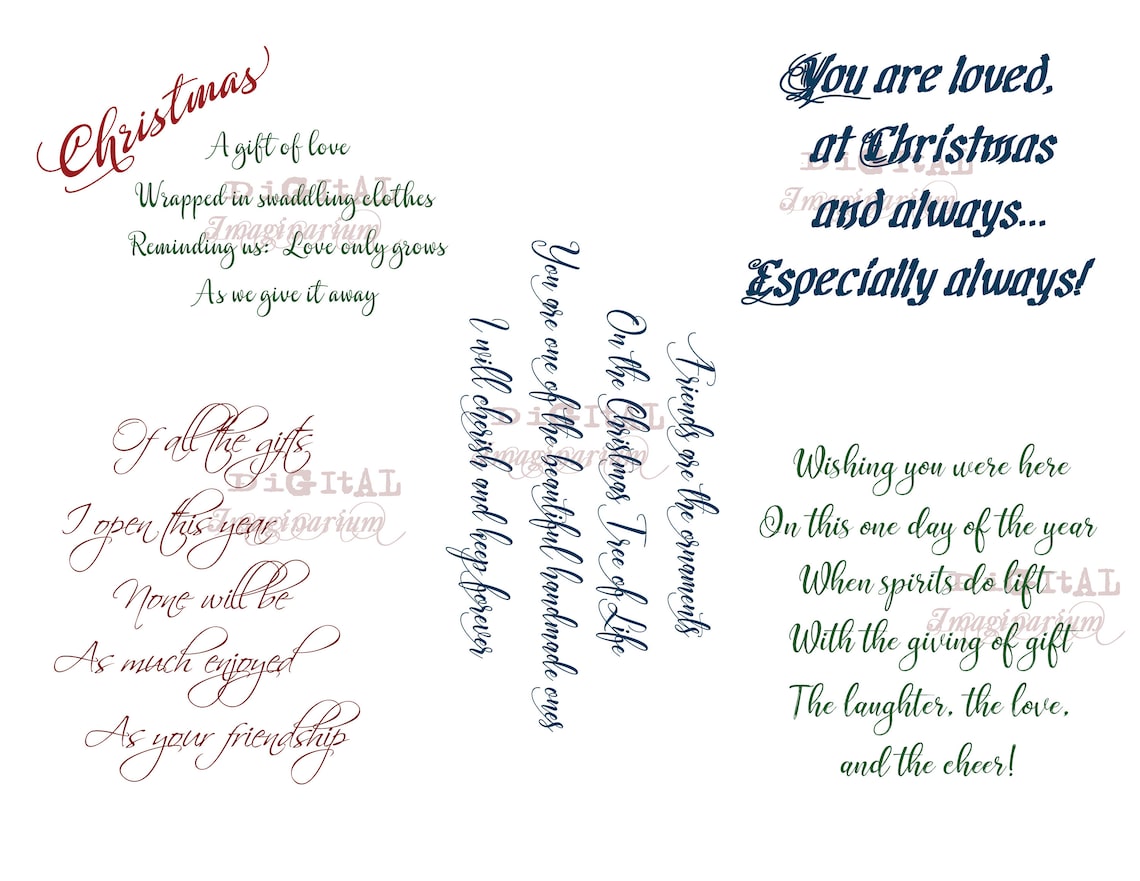 Christmas
A gift of love
Wrapped in swaddling clothes
Reminding us: Love only grows
As we give it away
DiGItAL
Imaginarium
You are loved,
at Christmas
and always...
Especially always!
DiGItAL
Imaginarium
Friends are the ornaments
On the Christmas Tree of Life
You are one of the beautiful handmade ones
I will cherish and keep forever
DiGItAL
Imaginarium
Of all the gifts
I open this year,
None will be
As much enjoyed
As your friendship
DiGItAL
Imaginarium
Wishing you were here
On this one day of the year
When spirits do lift
With the giving of gift
The laughter, the love,
and the cheer!
DiGItAL
Imaginarium